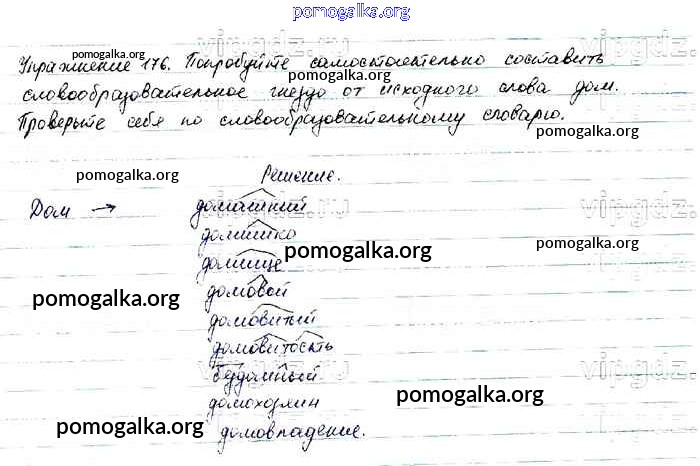 pomogalka.org
Упражнение 176. Попробуйте самостоятельно составить
pomogalka.org
pomogalka.org
словообразовательное гнездо от исходного слова дом.
Проверьте себя по словообразовательному словарю.
pomogalka.org
Решение.
pomogalka.org
vipgdz.ru
vipgdz.ru
Дом → домашний
домишко
pomogalka.org
pomogalka.org
домище
домовой
pomogalka.org
домовитый
домовитость
vipgdz.ru
vipgdz.ru
бездомный
домохозяин
pomogalka.org
pomogalka.org
домовладение.